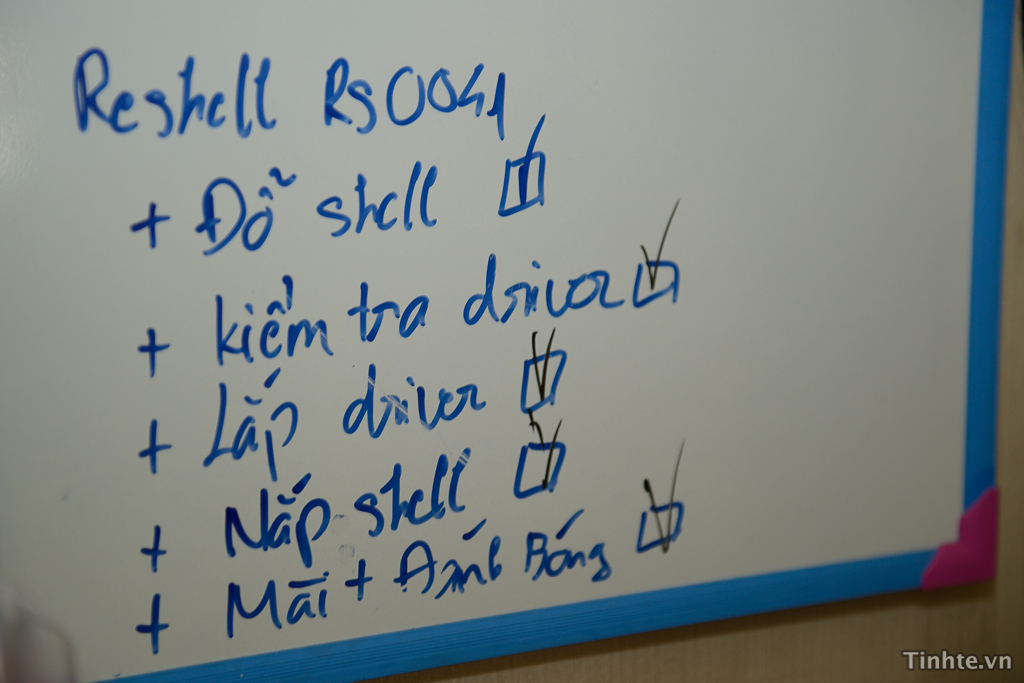 Reshell Rs0041
+ Đổ shell
+ kiểm tra driver
+ Lắp driver
+ Nắp shell
+ Mài + Bóng
Tinhte.vn